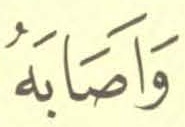 وَاَصَابَهُ